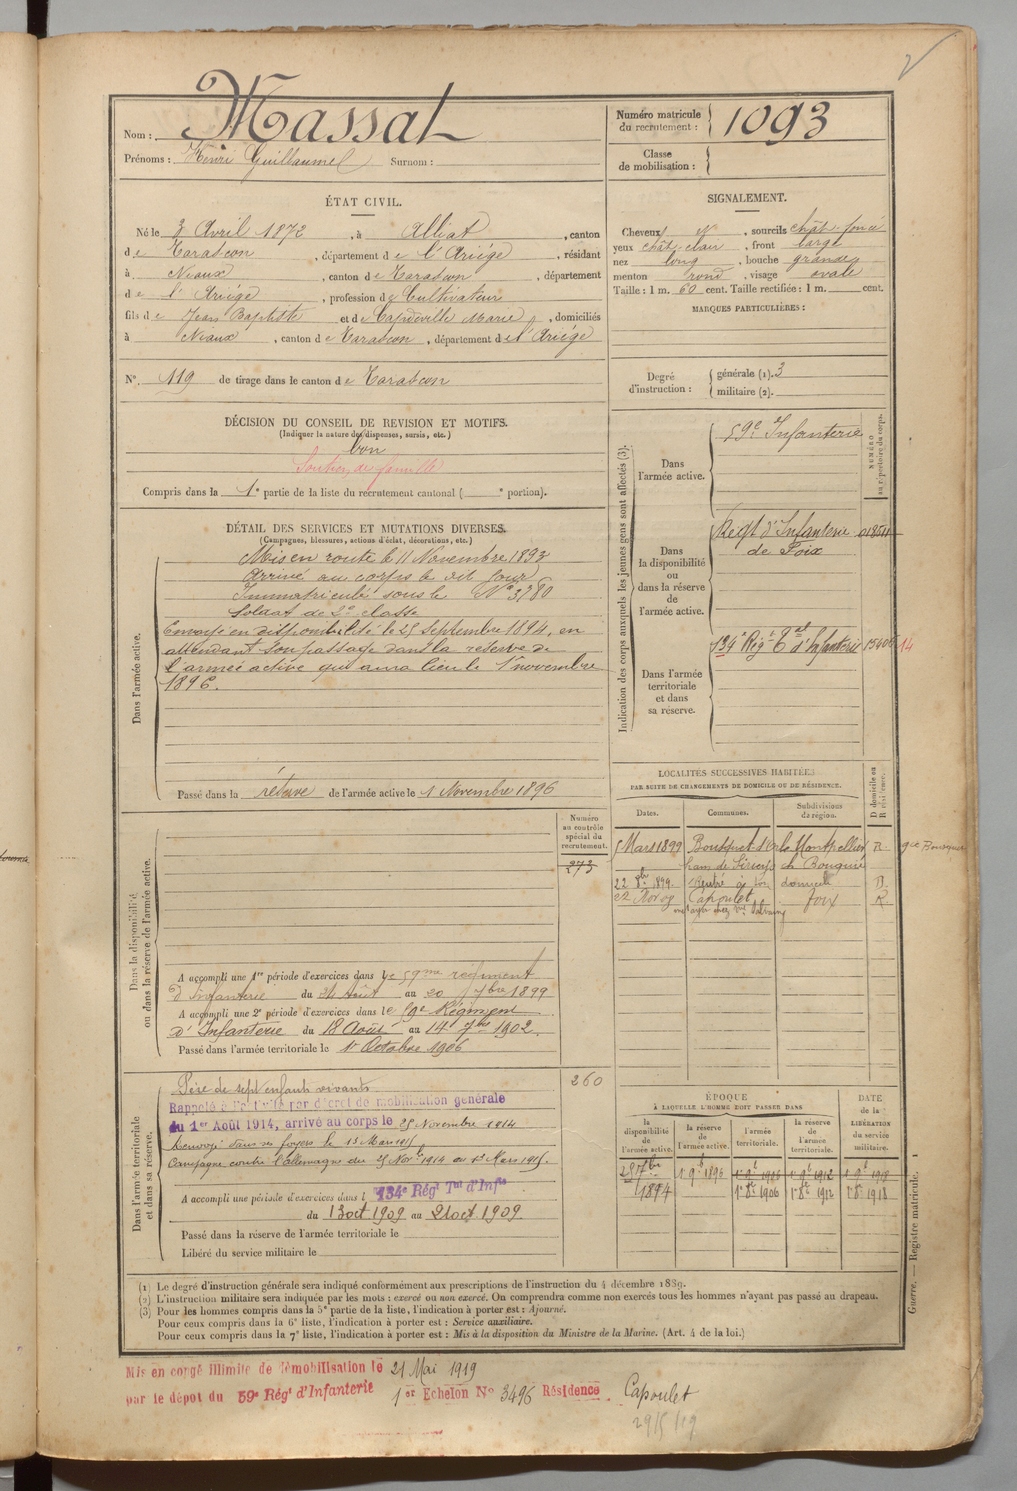 Nom : Massat
Prénoms : Henri Guillaume Surnom :
Numéro matricule du recrutement : 1093
Classe de mobilisation :
ÉTAT CIVIL.
Né le 3 Avril 1872, à Alliat, canton
de Tarascon, département de l'Ariége, résidant
à Niaux, canton de Tarascon, département
de l'Ariége, profession de Cultivateur
fils de Jean Baptiste et de Capdeville Marie, domiciliés
à Niaux, canton de Tarascon, département de l'Ariége
N° 119 de tirage dans le canton de Tarascon
SIGNALEMENT.
Cheveux N, sourcils chât. foncé
yeux chât. clair, front large
nez long, bouche grande
menton rond, visage ovale
Taille : 1 m. 60 cent. Taille rectifiée : 1 m. cent.
MARQUES PARTICULIÈRES :
Degré d'instruction :
générale (1). 3
militaire (2).
DÉCISION DU CONSEIL DE REVISION ET MOTIFS.
(Indiquer la nature des dispenses, sursis, etc.)
bon
Soutien de famille
Compris dans la 1e partie de la liste du recrutement cantonal ( e portion).
DÉTAIL DES SERVICES ET MUTATIONS DIVERSES.
(Campagnes, blessures, actions d'éclat, décorations, etc.)
Dans l'armée active.
Mis en route le 11 Novembre 1893
Arrivé au corps le dit jour
Immatriculé sous le N° 3780
Soldat de 2e classe
Envoyé en disponibilité le 25 septembre 1894, en
attendant son passage dans la réserve de
l'armée active qui aura lieu le 1er novembre
1896.
Passé dans la réserve de l'armée active le 1 Novembre 1896
Indication des corps auxquels les jeunes gens sont affectés (3).
NUMÉRO au répertoire du corps.
Dans l'armée active.
59e Infanterie
Dans la disponibilité ou dans la réserve de l'armée active.
Regt d'Infanterie
de Foix
Dans l'armée territoriale et dans sa réserve.
134e Régt Tal d'Infanterie
14
LOCALITÉS SUCCESSIVES HABITÉES
PAR SUITE DE CHANGEMENTS DE DOMICILE OU DE RÉSIDENCE.
Dates. Communes. Subdivisions de région. D domicile ou R résidence.
5 Mars 1899 Bousquet d'Orb Montpellier R
22 8bre 1899. Rentré à son domicile D.
22 Nov 09 Capoulet Foix R.
Dans la disponibilité ou dans la réserve de l'armée active.
Numéro au contrôle spécial du recrutement.
273
A accompli une 1re période d'exercices dans le 59me régiment
d'Infanterie du 24 Août au 20 7bre 1899
A accompli une 2e période d'exercices dans le 59e Régiment
d'Infanterie du 18 Août au 14 7bre 1902.
Passé dans l'armée territoriale le 1er Octobre 1906
Dans l'armée territoriale et dans sa réserve.
260
Père de sept enfants vivants
Rappelé à l'activité par décret de mobilisation générale
du 1er Août 1914, arrivé au corps le 25 Novembre 1914
Renvoyé dans ses foyers le 15 Mars 1915
Campagne contre l'allemagne du 25 Nov. 1914 au 15 Mars 1915.
A accompli une période d'exercices dans l 134e Régt Tal d'Infie
du 13 oct 1909 au 21 oct 1909.
Passé dans la réserve de l'armée territoriale le
Libéré du service militaire le
ÉPOQUE
À LAQUELLE L'HOMME DOIT PASSER DANS
la disponibilité de l'armée active. la réserve de l'armée active. l'armée territoriale. la réserve de l'armée territoriale.
DATE de la LIBÉRATION du service militaire.
25 7bre 1er 9b 1893 1er 9b 1906 1er 9b 1912 1er 9b 1918
1894 1er 8bre 1906 1er 8bre 1912 1er 8bre 1918
Guerre. — Registre matricule. 1
(1) Le degré d'instruction générale sera indiqué conformément aux prescriptions de l'instruction du 4 décembre 1889.
(2) L'instruction militaire sera indiquée par les mots : exercé ou non exercé. On comprendra comme non exercés tous les hommes n'ayant pas passé au drapeau.
(3) Pour les hommes compris dans la 5e partie de la liste, l'indication à porter est : Ajourné.
Pour ceux compris dans la 6e liste, l'indication à porter est : Service auxiliaire.
Pour ceux compris dans la 7e liste, l'indication à porter est : Mis à la disposition du Ministre de la Marine. (Art. 4 de la loi.)
Mis en congé illimité de démobilisation le 21 Mai 1919
par le dépôt du 59e Régt d'Infanterie 1er Echelon N° 3496 Résidence Capoulet
29/5/19